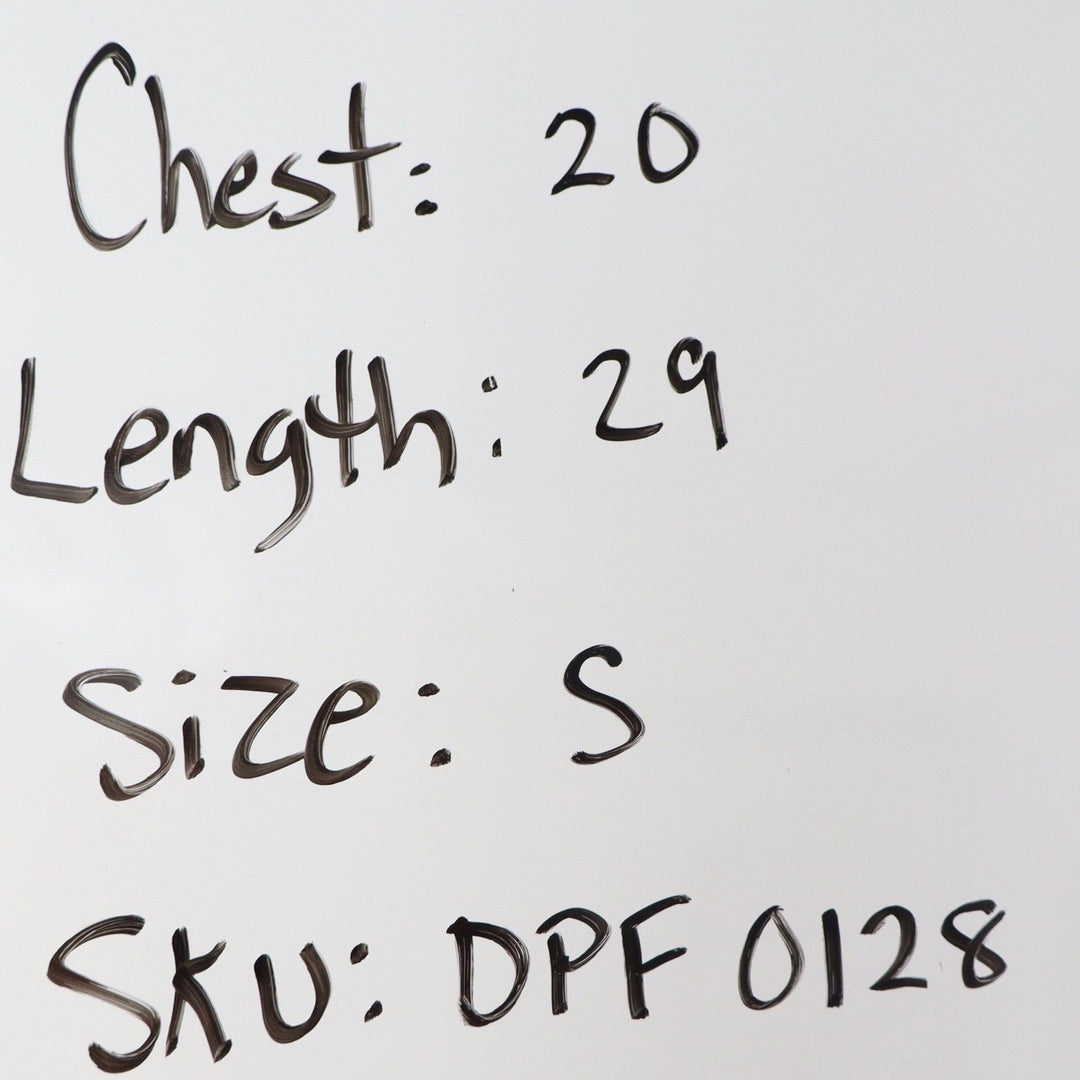 Chest: 20
Length: 29
Size: S
Sku: DPF 0128